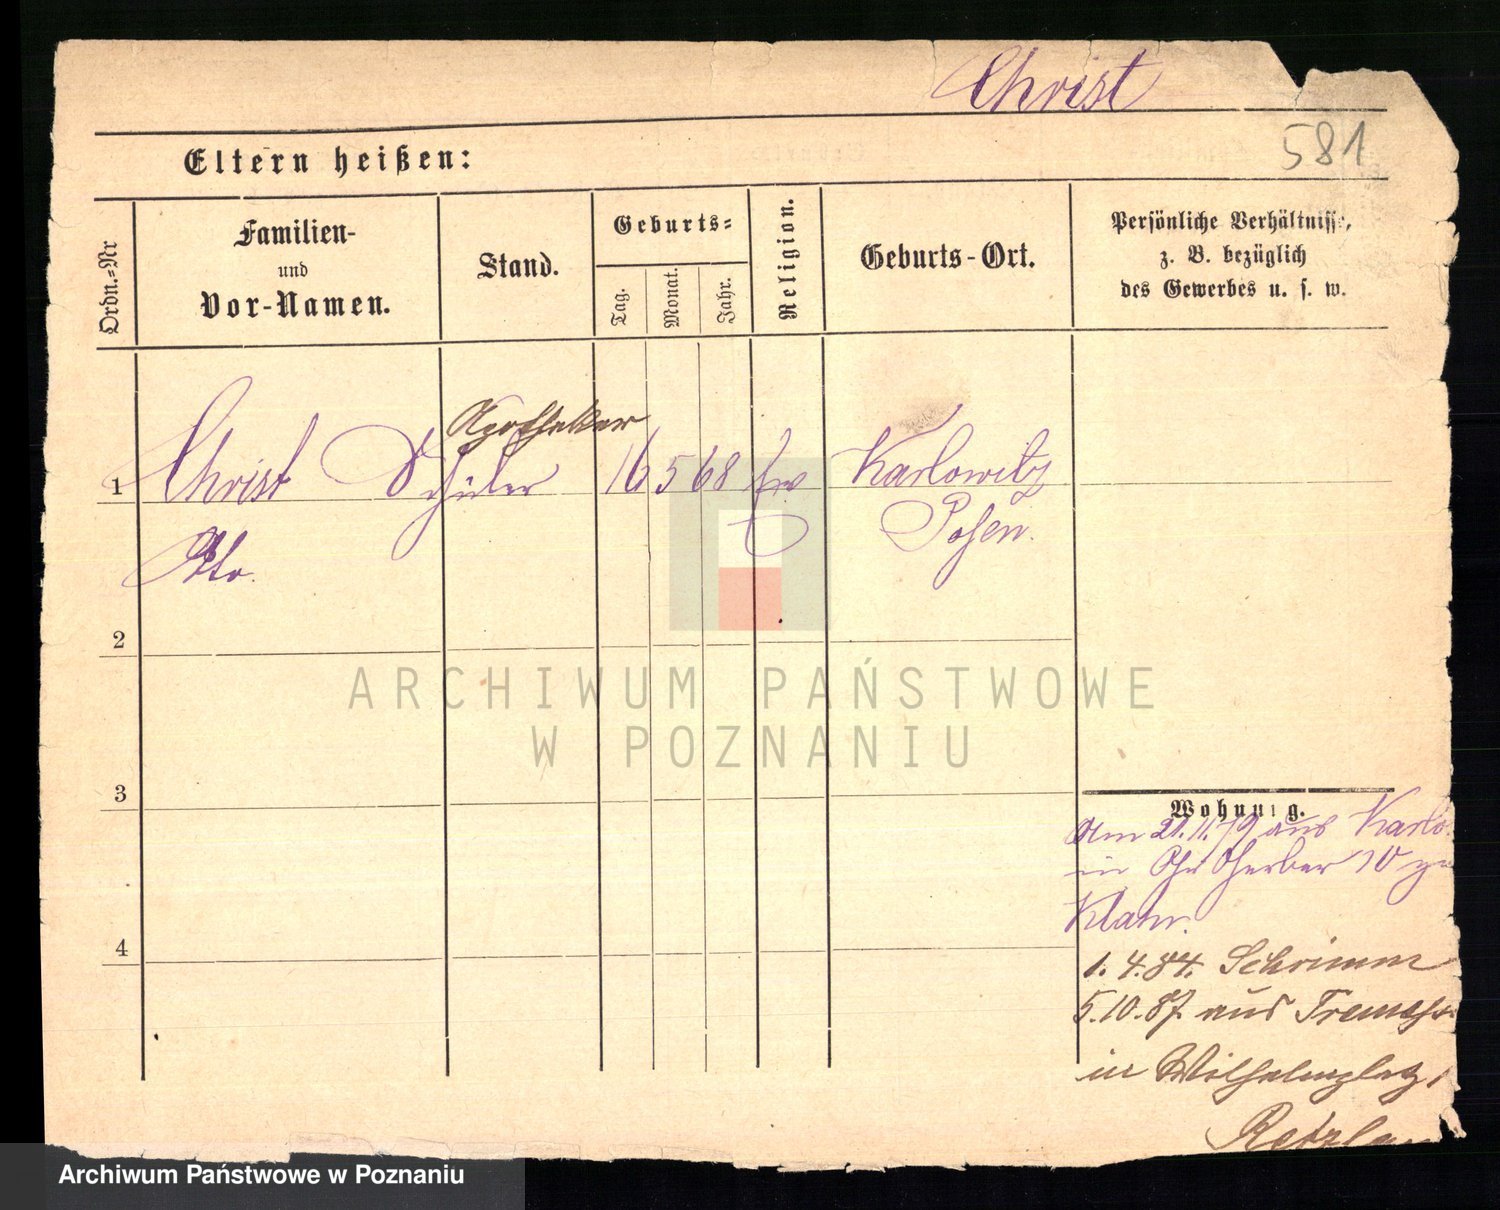 Christ
581
Eltern heißen:
Ordn.=Nr
Familien-
und
Vor-Namen.
Stand.
Geburts=
Tag.
Monat.
Jahr.
Religion.
Geburts-Ort.
Persönliche Verhältnisse,
z. B. bezüglich
des Gewerbes u. s. w.
Apotheker
1 Christ Schüler 16 5 68 ev Karlowitz
Otto. Posen.
2
3
4
Wohnung.
Am 21.11.79 aus Karlo
in 10
1.4.84. Schrimm
5.10.87 aus
in Wilhelmplatz
ARCHIWUM PAŃSTWOWE
W POZNANIU
Archiwum Państwowe w Poznaniu